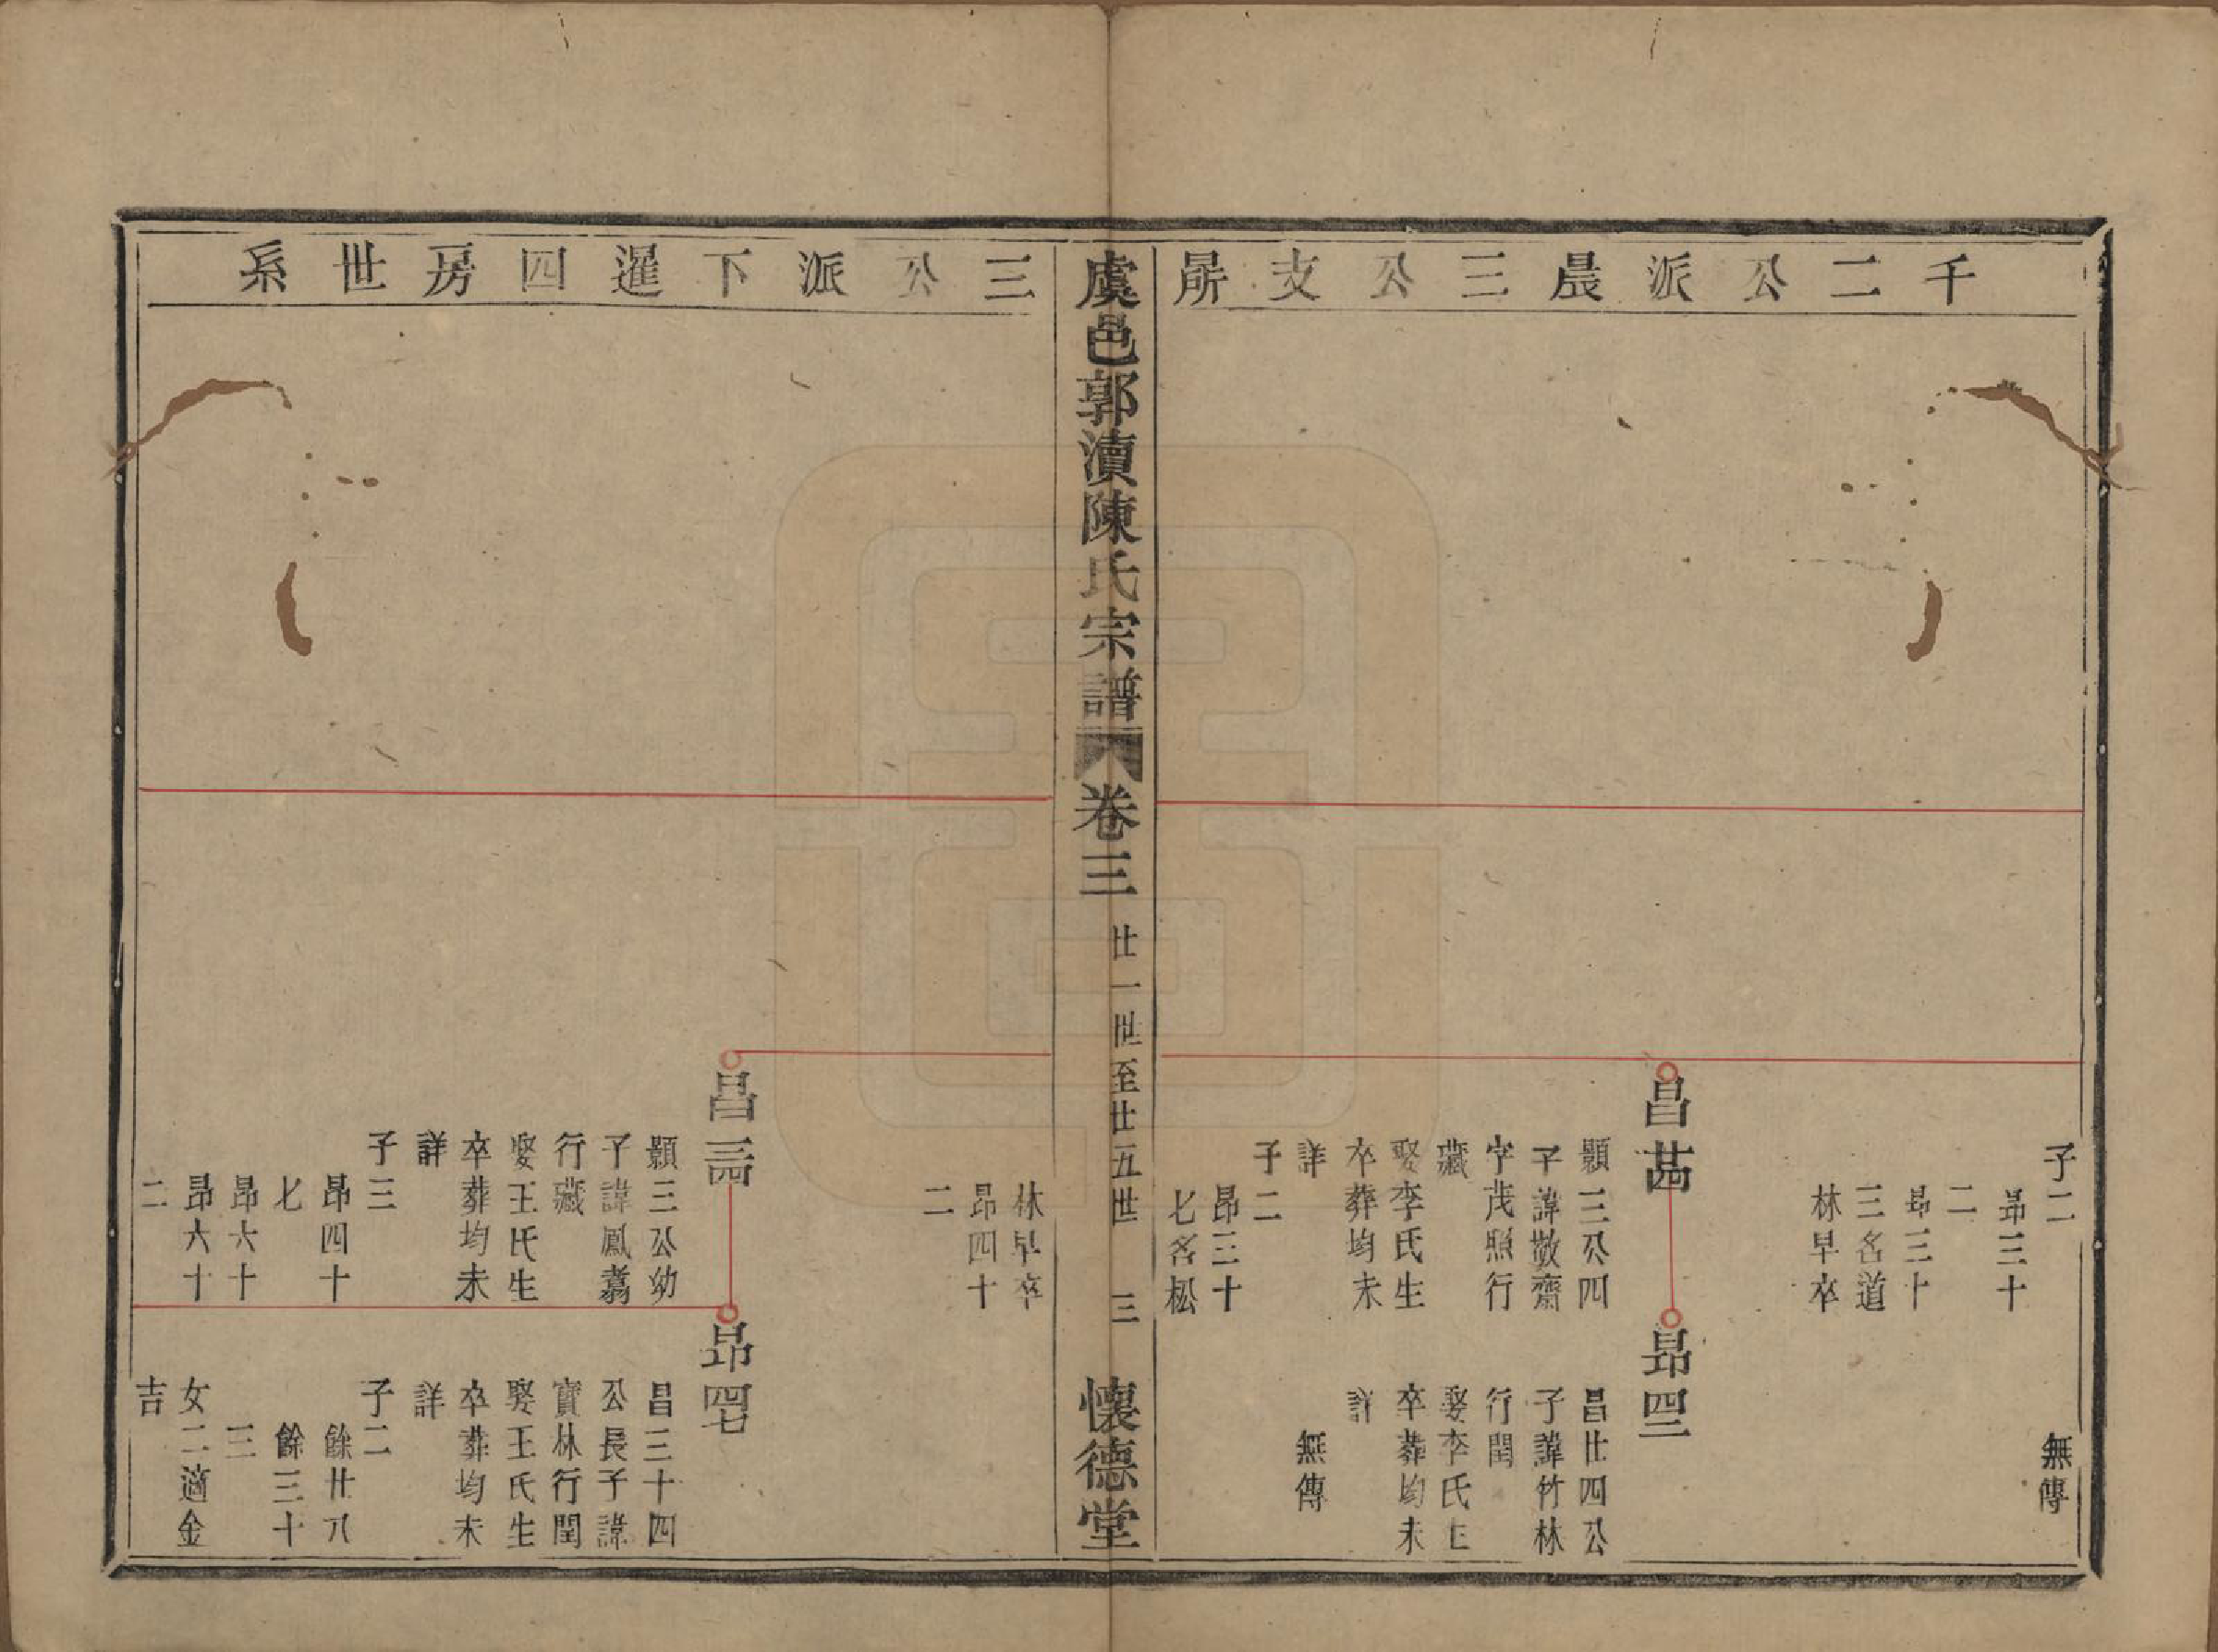 千二公派晟三公支昺
子二
昂三十
二
昂三十
三名道
林早卒
無傳
昌廿四
顥三公四
子諱敬齋
字茂照行
藏
娶李氏生
卒葬均未
詳
子二
昂三十
七名松
昂四二
昌廿四公
子諱竹林
行閏
娶李氏生
卒葬均未
詳
無傳
虞邑郭瀆陳氏宗譜 卷三 廿一世至廿五世 三 懷德堂
三公派下暹四房世系
林早卒
昂四十
二
昌三四
顥三公幼
子諱鳳翥
行藏
娶王氏生
卒葬均未
詳
子三
昂四十
七
昂六十
昂六十
二
昂四七
昌三十四
公長子諱
寳林行閏
娶王氏生
卒葬均未
詳
子二
餘廿八
餘三十
三
女二適金
吉